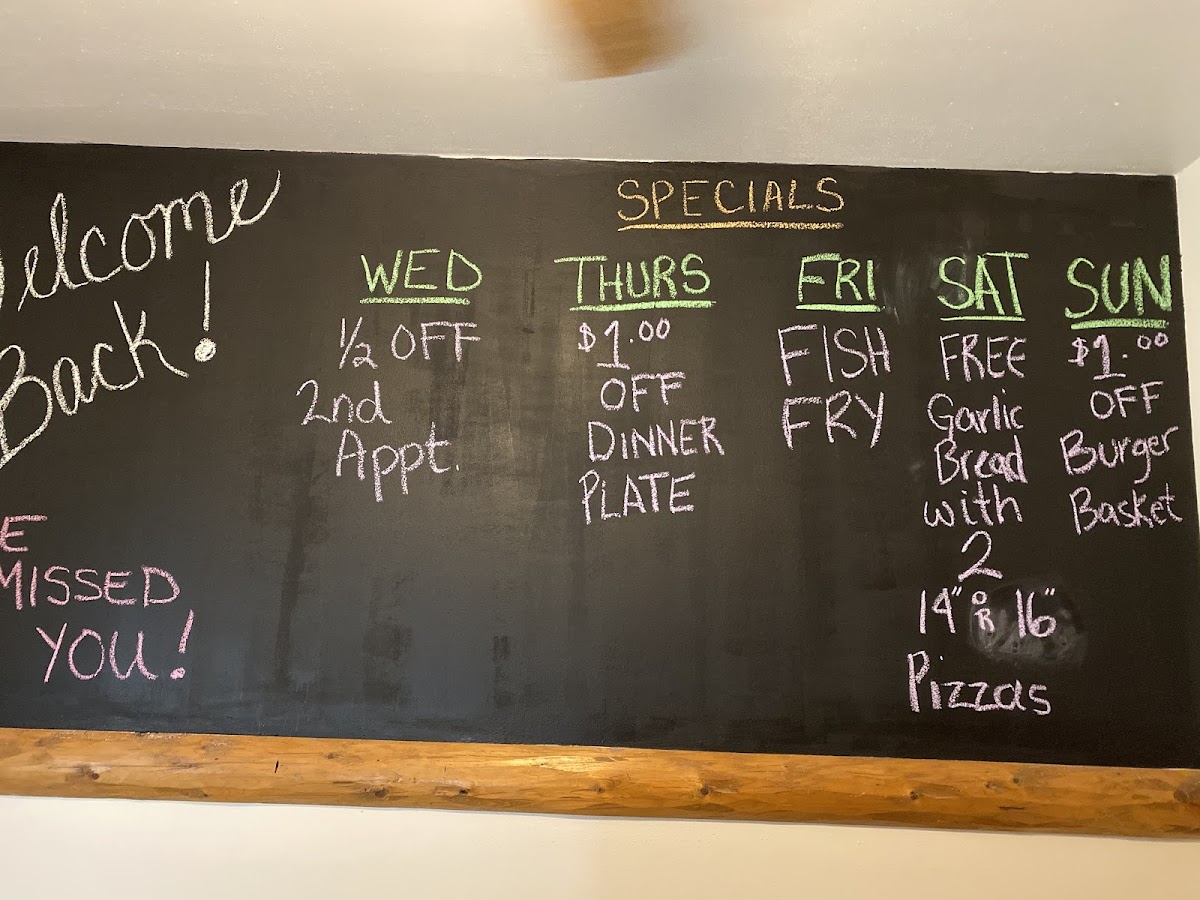 Welcome
Back!
E
MISSED
YOU!
SPECIALS
WED
1/2 OFF
2nd
Appt.
THURS
$1.00
OFF
DINNER
PLATE
FRI
FISH
FRY
SAT
FREE
Garlic
Bread
with
2
14" OR 16"
Pizzas
SUN
$1.00
OFF
Burger
Basket